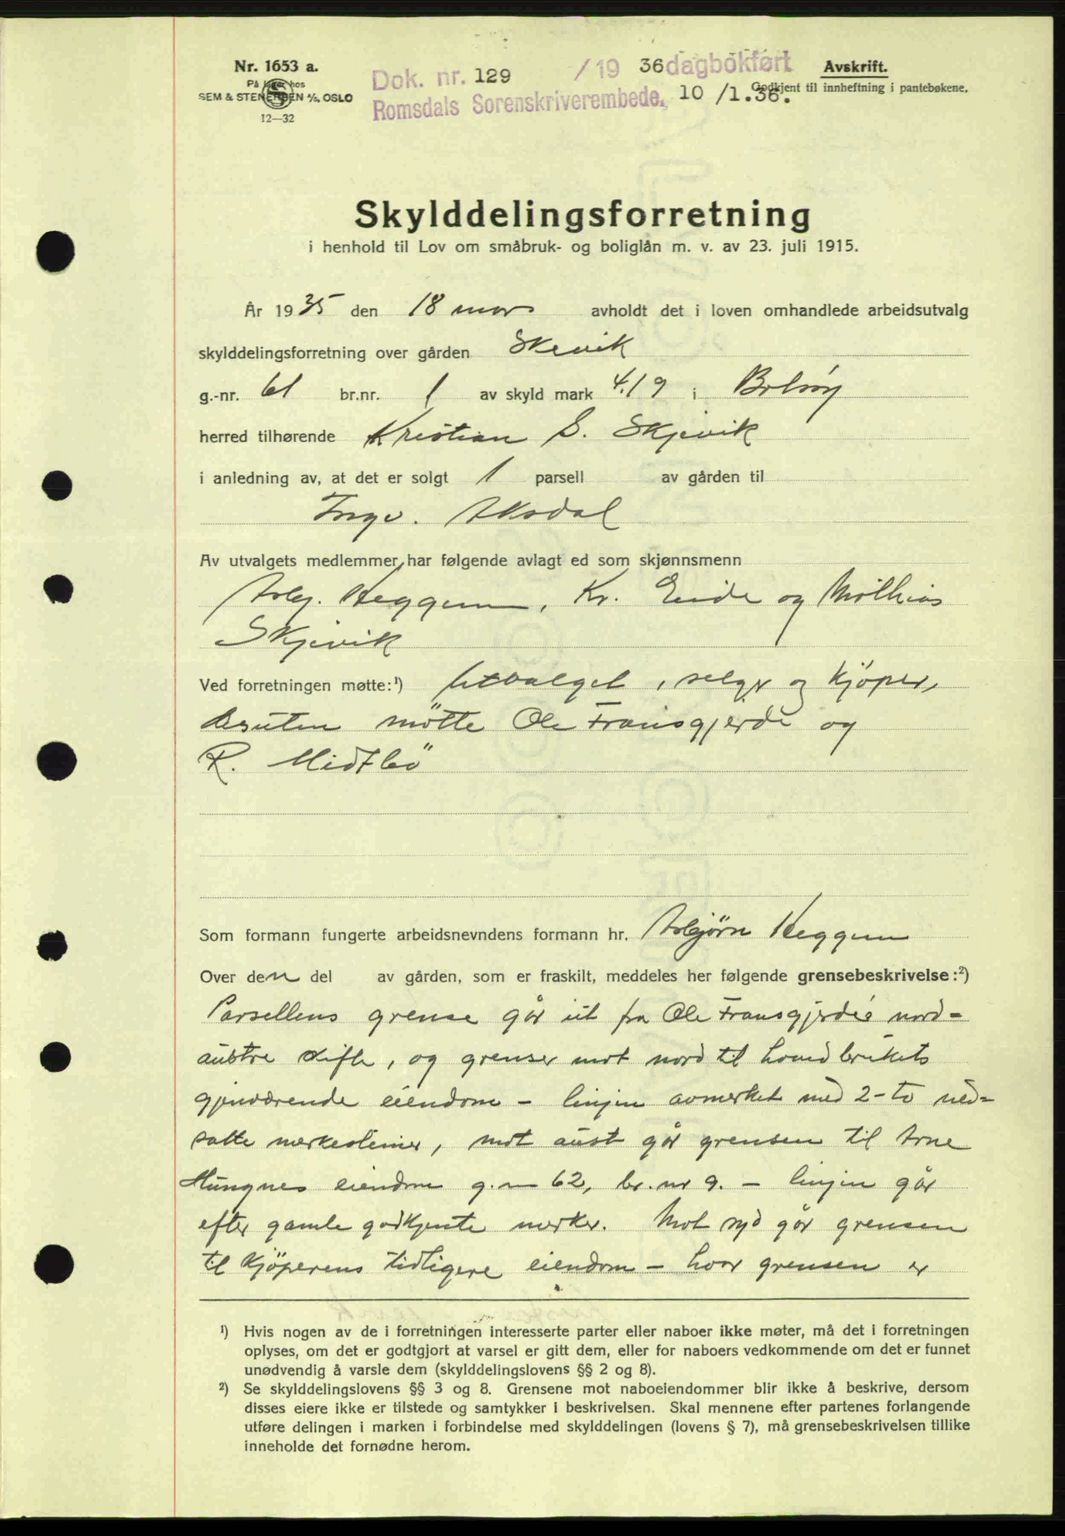 Nr. 1653 a.
På lager hos
SEM & STENERSEN A/S, OSLO
12—32
Dok. nr. 129 /19 36 dagbokført
Romsdals Sorenskriverembede, 10 /1.36.
Avskrift.
Godkjent til innheftning i pantebøkene.
Skylddelingsforretning
i henhold til Lov om småbruk- og boliglån m. v. av 23. juli 1915.
År 1935 den 18 mars avholdt det i loven omhandlede arbeidsutvalg
skylddelingsforretning over gården Skevik
g.-nr. 61 br.nr. 1 av skyld mark 4.19 i Bolsøy
herred tilhørende Kristian S. Skjevik
i anledning av, at det er solgt 1 parsell av gården til
Ingv. Aksdal
Av utvalgets medlemmer har følgende avlagt ed som skjønnsmenn
Asbj. Heggem, Kr. Eide og Mathias
Skjevik
Ved forretningen møtte:¹) Utvalget, selger og kjøper,
desuten møtte Ole Fransgjerde og
R. Midtbø
Som formann fungerte arbeidsnevndens formann hr. Asbjørn Heggem
Over den del av gården, som er fraskilt, meddeles her følgende grensebeskrivelse:²)
Parsellens grense går ut fra Ole Fransgjerde's nord-
austre difle, og grenser mot nord til hovedbrukets
gjenværende eiendom – linjen avmerket med 2-to ned-
satte merkesteiner, mot aust går grensen til Arne
Hungnes eiendom g.nr 62, br.nr 9. – linjen går
efter gamle godkjente merker. Mot syd går grensen
til kjøperens tidligere eiendom – hvor grensen er
¹) Hvis nogen av de i forretningen interesserte parter eller naboer ikke møter, må det i forretningen
oplyses, om det er godtgjort at varsel er gitt dem, eller for naboers vedkommende om det er funnet
unødvendig å varsle dem (skylddelingslovens §§ 2 og 8).
²) Se skylddelingslovens §§ 3 og 8. Grensene mot naboeiendommer blir ikke å beskrive, dersom
disses eiere ikke er tilstede og samtykker i beskrivelsen. Skal mennene efter partenes forlangende
utføre delingen i marken i forbindelse med skylddelingen (lovens § 7), må grensebeskrivelsen tillike
inneholde det fornødne herom.